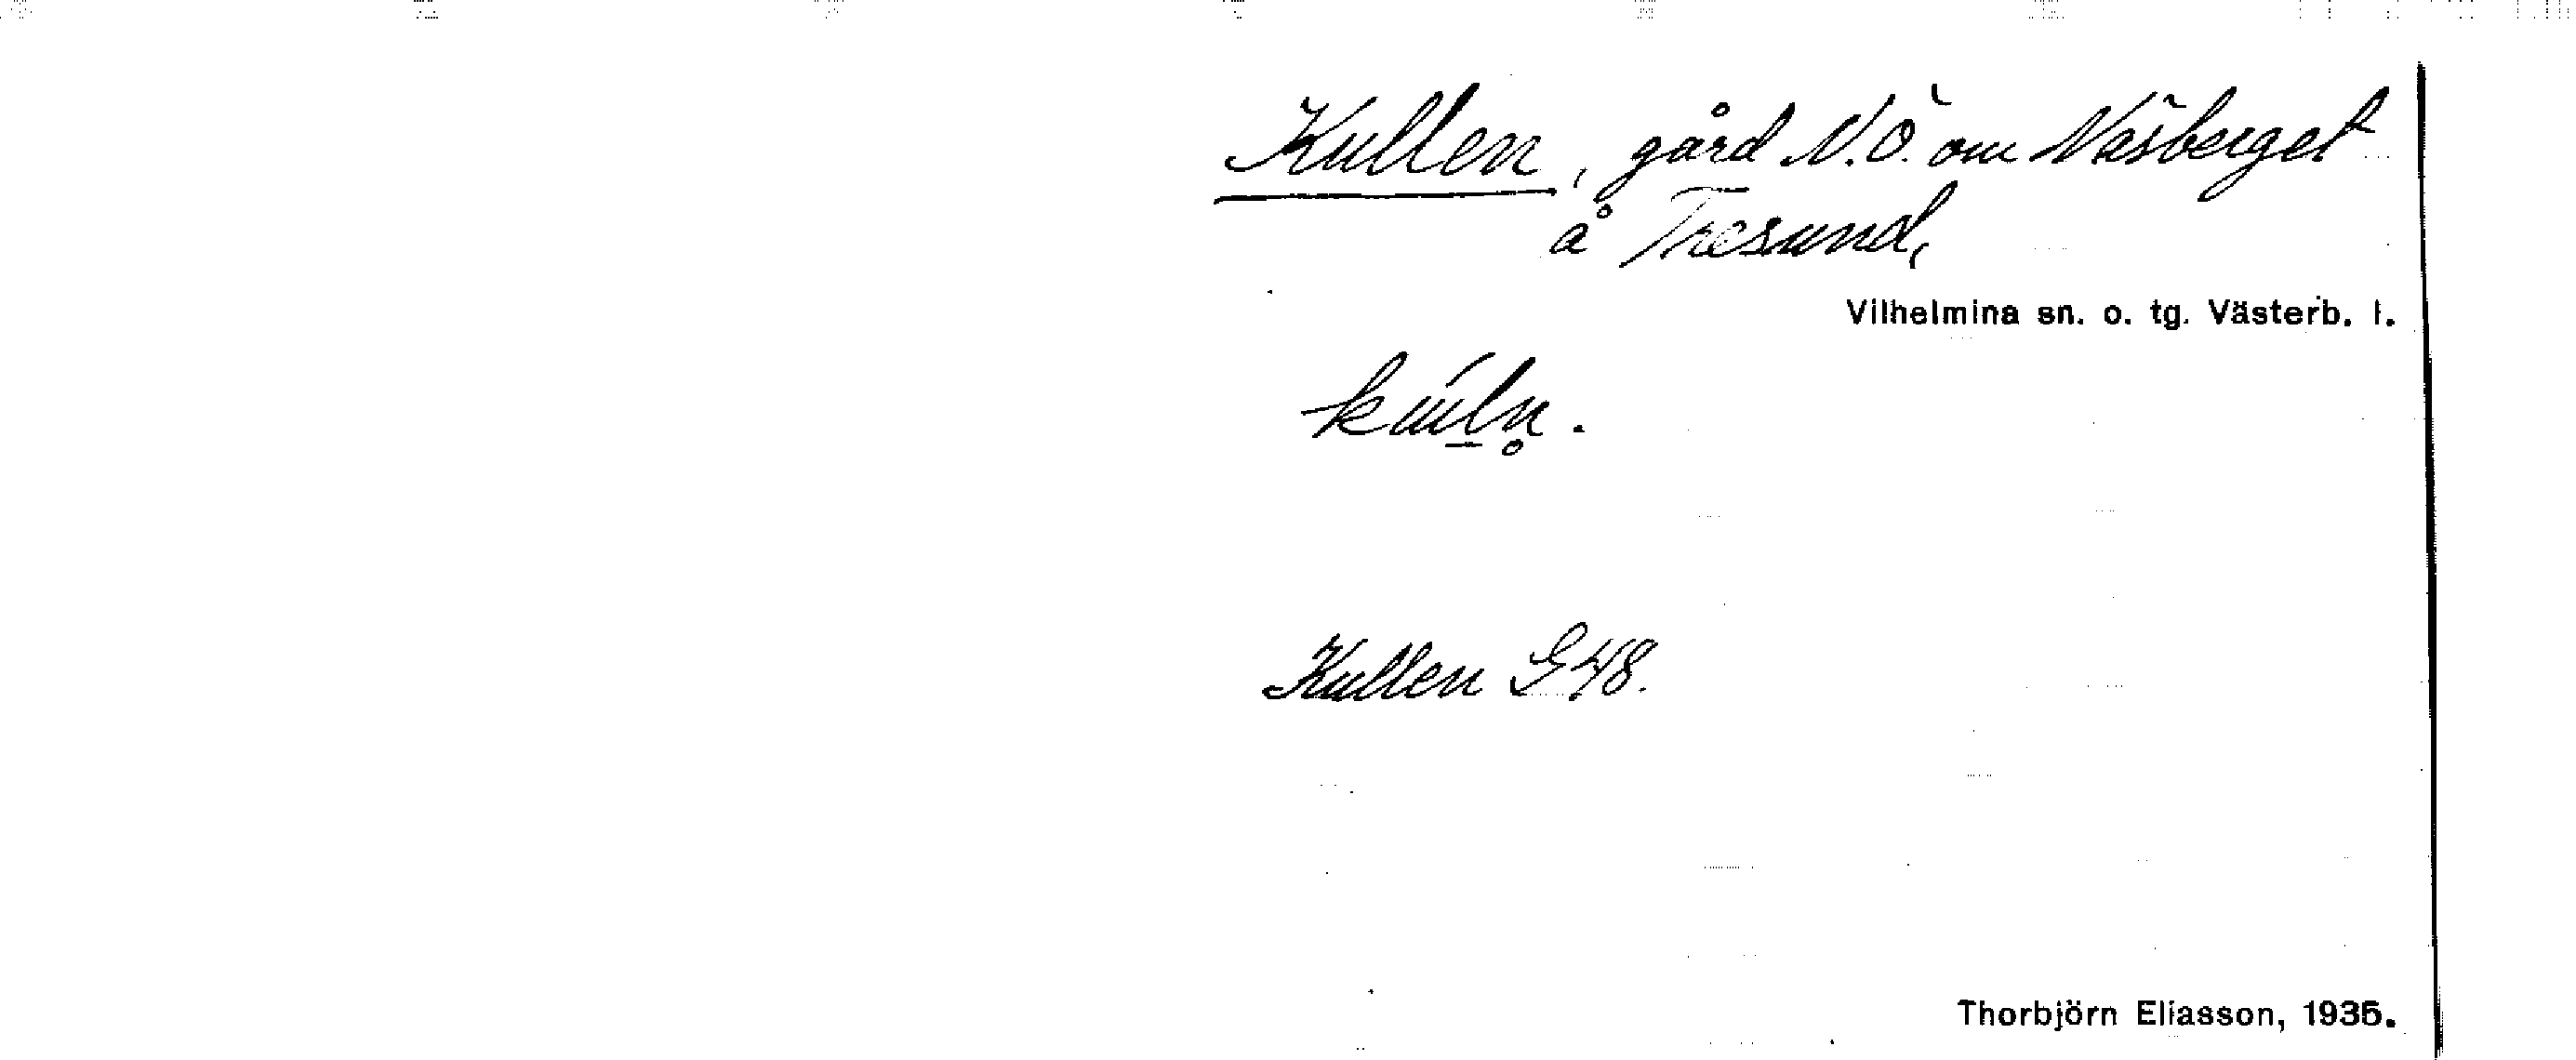 Kullen, gård N.Ö. om Näsberget
å Tresund,
Vilhelmina sn. o. tg. Västerb. l.
Kullen G 48.
Thorbjörn Eliasson, 1935.